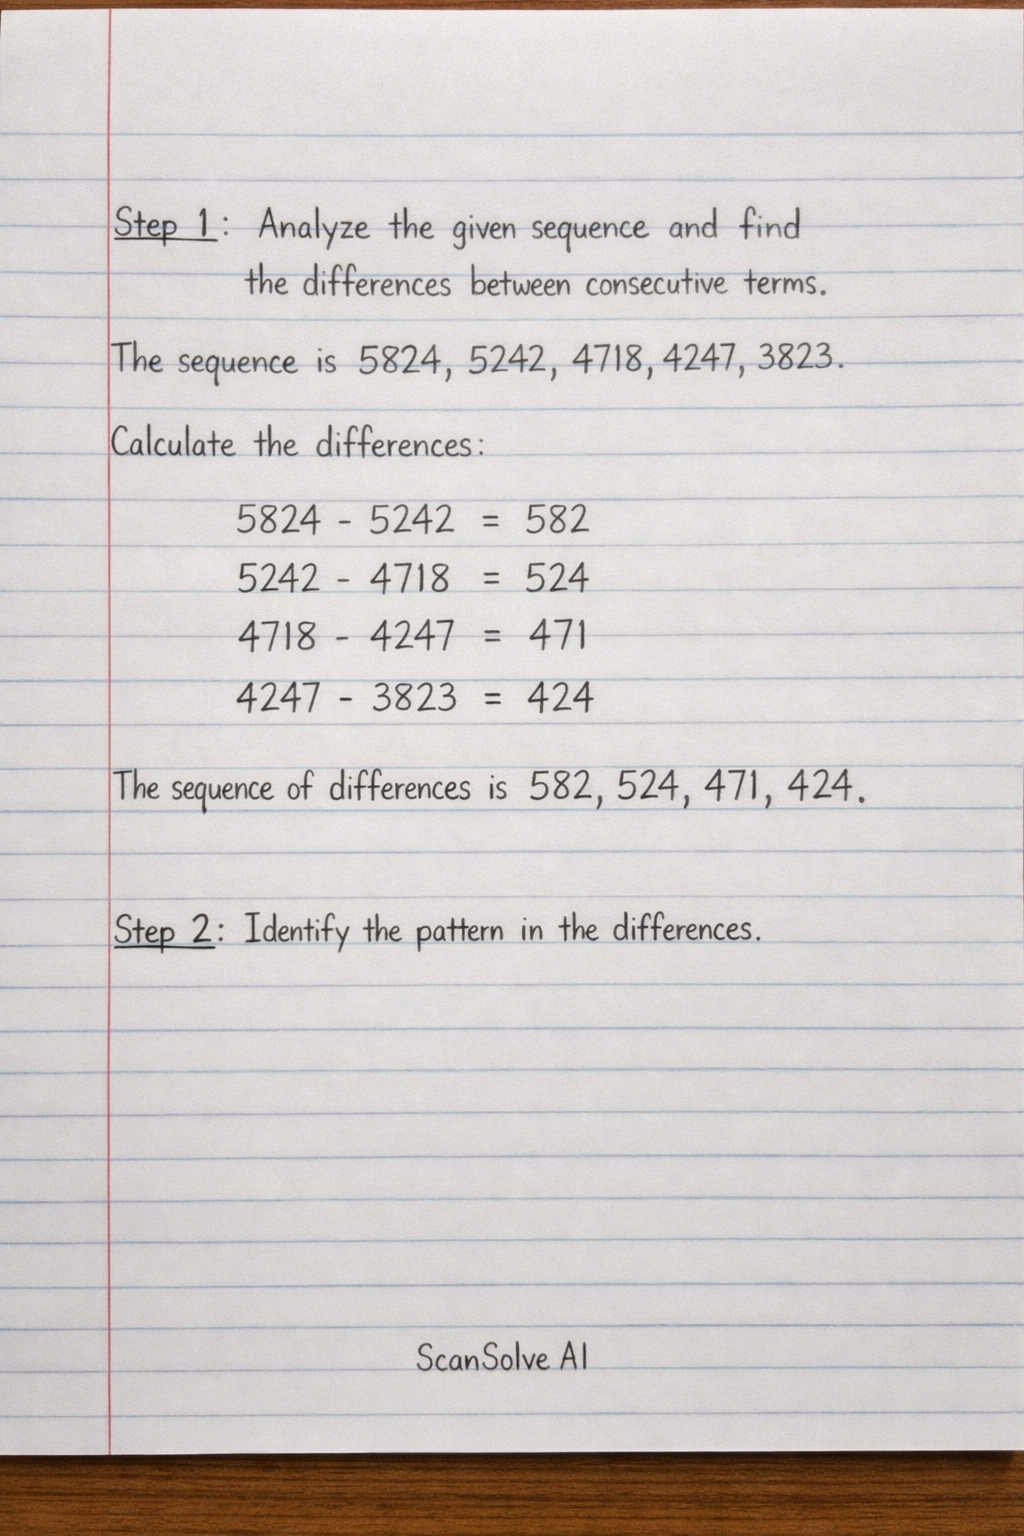 Step 1: Analyze the given sequence and find
the differences between consecutive terms.
The sequence is 5824, 5242, 4718, 4247, 3823.
Calculate the differences:
5824 - 5242 = 582
5242 - 4718 = 524
4718 - 4247 = 471
4247 - 3823 = 424
The sequence of differences is 582, 524, 471, 424.
Step 2: Identify the pattern in the differences.
ScanSolve AI